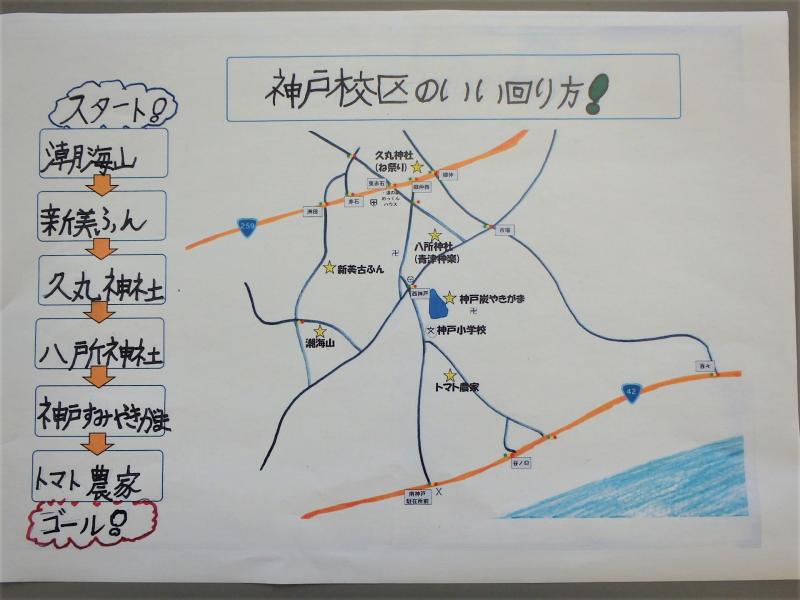 神戸校区のいい回り方!
スタート!
潮海山
新美ふん
久丸神社
八戸所神社
神戸すみやきがま
トマト農家
ゴール!
久丸神社
(ね祭り)
東赤石
赤石
めっくん
ハウス
259
八所神社
(青津神楽)
市場
新美古ふん
西神戸
神戸炭やきがま
神戸小学校
潮海山
トマト農家
42
谷ノ口
南神戸
駐在所前